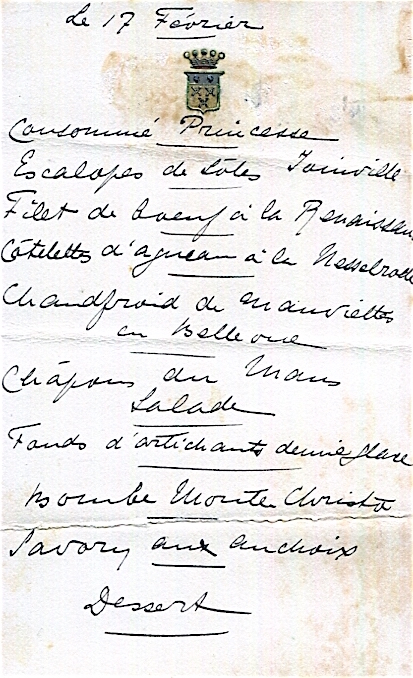 Le 17 Février
Consommé Princesse
Escalopes de Sôles Joinville
Filet de boeuf à la Renaissan
Côtelettes d'agneau à la Nesselrode
Chaudfroid de Mauviettes
en Belle vue
Châpons du Mans
Salade
Fonds d'artichauts demie glace
Bombe Monte Christo
Savory aux anchoix
Dessert